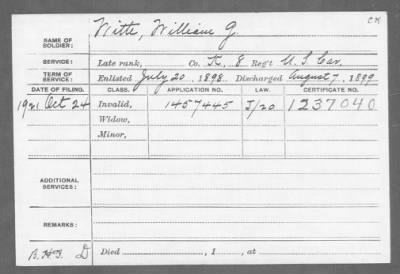 CK
NAME OF SOLDIER: Witt, William G.
SERVICE: Late rank, Co. K, 8 Reg't U.S. Cav.
TERM OF SERVICE: Enlisted July 20, 1898. Discharged August 7, 1899
DATE OF FILING. CLASS. APPLICATION NO. LAW. CERTIFICATE NO.
1921 Oct 24 Invalid, 1457445 J/20 1237040
Widow,
Minor,
ADDITIONAL SERVICES:
REMARKS:
D Died , 1 , at